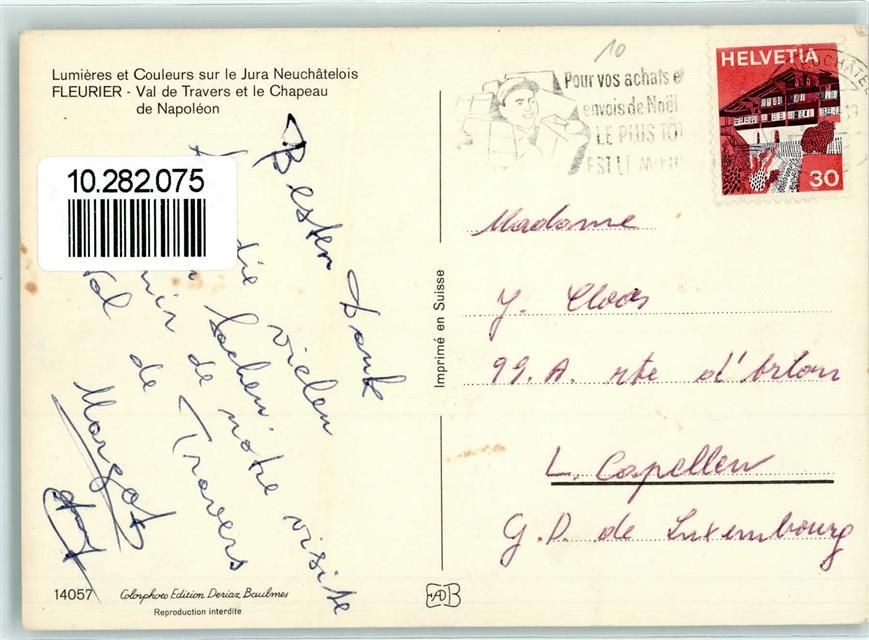 Lumières et Couleurs sur le Jura Neuchâtelois
FLEURIER - Val de Travers et le Chapeau
de Napoléon
10.282.075
Besten Dank
die vielen
Sachen. notre visite
de
Val de Travers
Margot
Imprimé en Suisse
10
Pour vos achats et
envois de Noël
LE PLUS TÔT
EST LE
HELVETIA
30
Madame
Y. Cloos
99.A. rte d'Arlon
L. Capellen
G.D. de Luxembourg
14057
Colorphoto Edition Deriaz Baulmes
Reproduction interdite